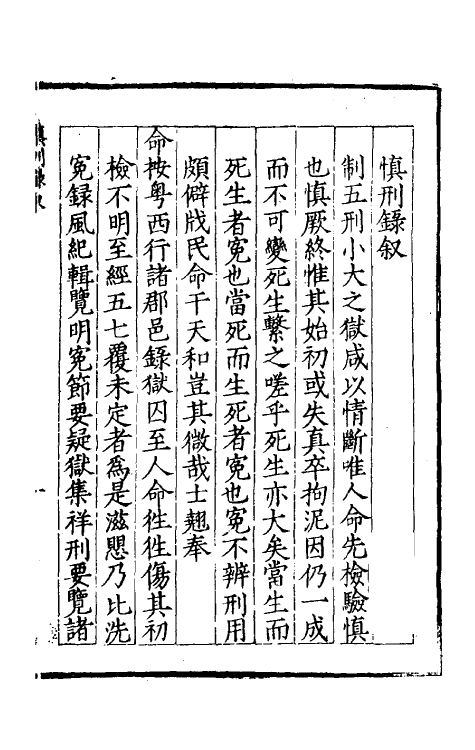 慎刑錄叙
制五刑小大之獄咸以情斷唯人命先檢驗慎
也慎厥終惟其始初或失真卒拘泥因仍一成
而不可變死生繫之嗟乎死生亦大矣當生而
死生者冤也當死而生死者冤也冤不辨刑用
頗僻戕民命干天和豈其微哉士翹奉
命按粤西行諸郡邑錄獄囚至人命徃徃傷其初
檢不明至經五七覆未定者爲是滋愳乃比洗
冤錄風紀輯覽明冤節要疑獄集祥刑要覽諸
一